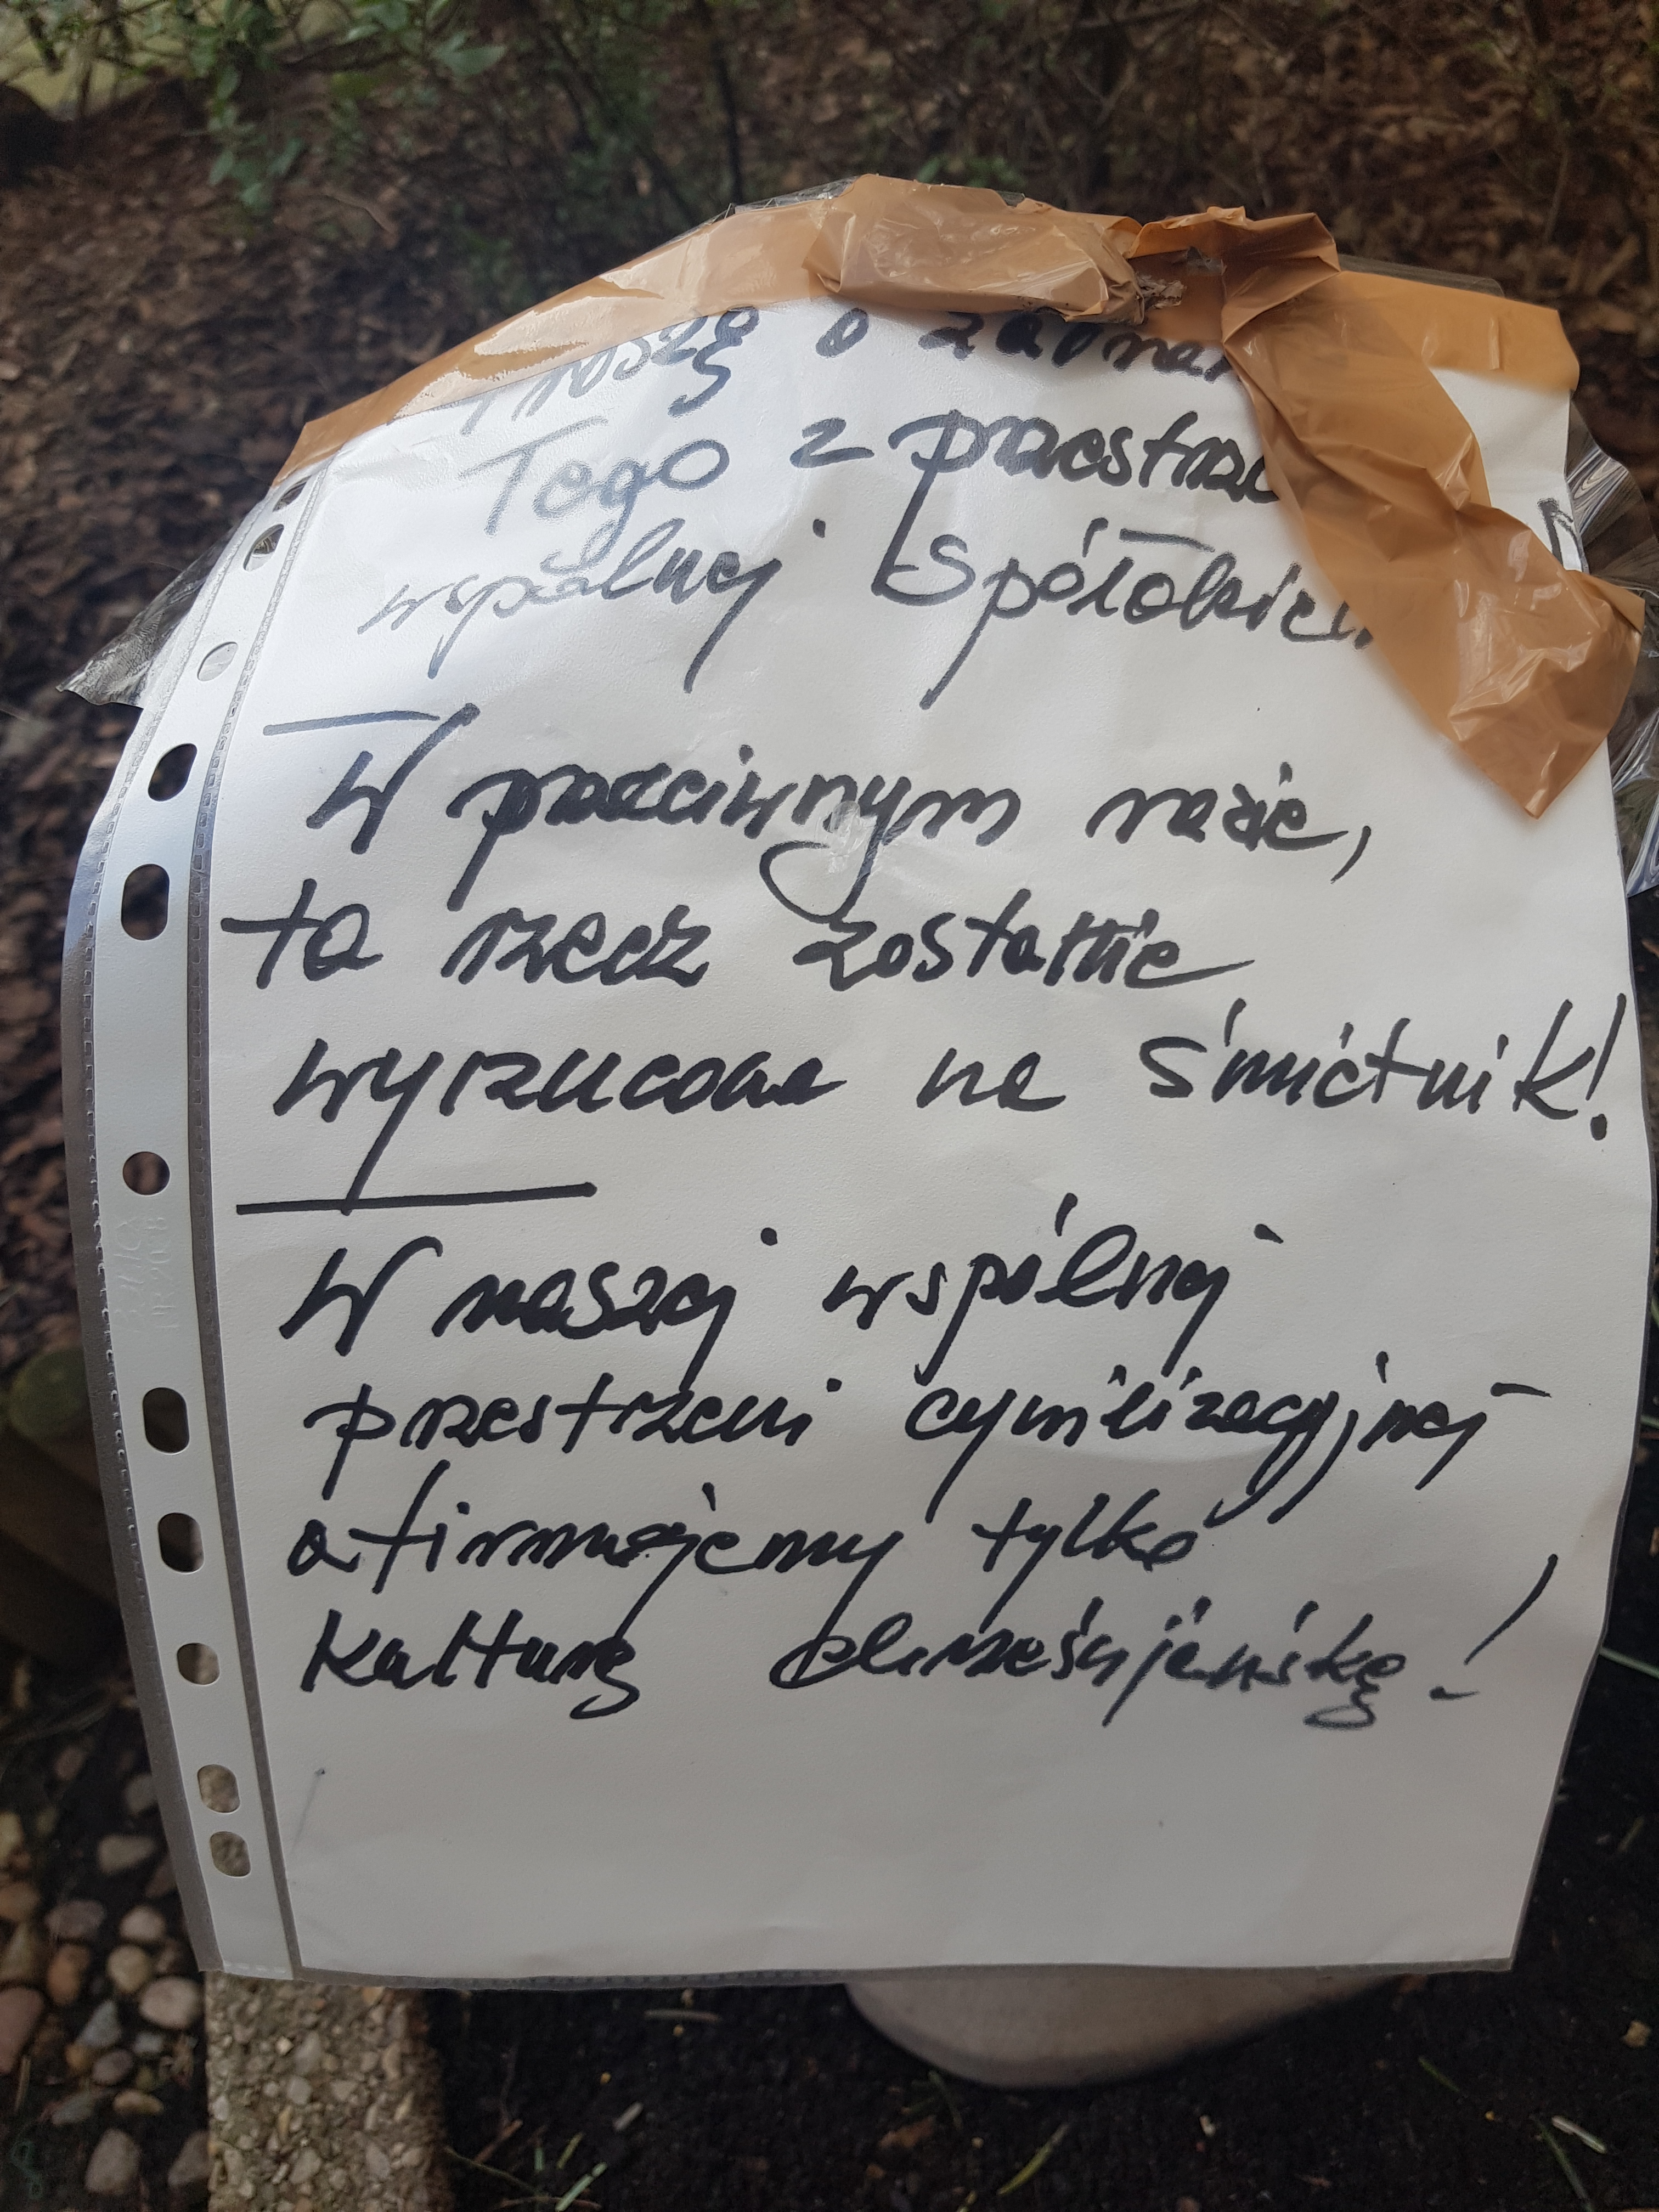 Proszę o zabranie
Tego z przestrze
wspólnej Spółdziel
W przeciwnym razie,
ta rzecz zostanie
wyrzucona na śmietnik!
W naszej wspólnej
przestrzeni cywilizacyjnej
afirmujemy tylko
kulturę chrześcijańską!